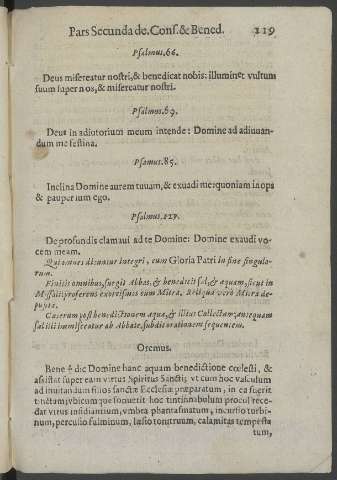 Pars Secunda de. Cons. & Bened. 219
Psalmus. 66.
Deus misereatur nostri, & benedicat nobis: illuminet vultum
suum super nos, & misereatur nostri.
Psalmus. 69.
Deus in adiutorium meum intende: Domine ad adiuuan-
dum me festina.
Psamus. 85.
Inclina Domine aurem tuuam, & exuadi me: quoniam inops
& pauperium ego.
Psalmus. 127.
De profundis clamaui ad te Domine: Domine exaudi vo-
cem meam.
Qui omnes dicuntur integri, cum Gloria Patri in fine singulo-
rum.
Finitis omnibus, surgit Abbas, & benedicit sal, & aquam, sicut in
Missali, proferens exorcismos cum Mitra. Reliqua vero Mitra de-
posita.
Cæterum post benedictionem aquæ, & illius Collectam, antequam
sal illi immisceatur ab Abbate, subdit orationem sequentem.
Oremus.
Bene ✠ dic Domine hanc aquam benedictione cœlesti, &
assistat super eam virtus Spiritus Sancti; vt cum hoc vasculum
ad inuitandum filios sanctæ Ecclesiæ præparatum, in ea fuerit
tinctum, vbicumque sonuerit hoc tintinnabulum procul rece-
dat virtus insidiantium, vmbra phantasmatum, incursio turbi-
num, percusio fulminum, læsio tonitruum, calamitas tempesta
tum,